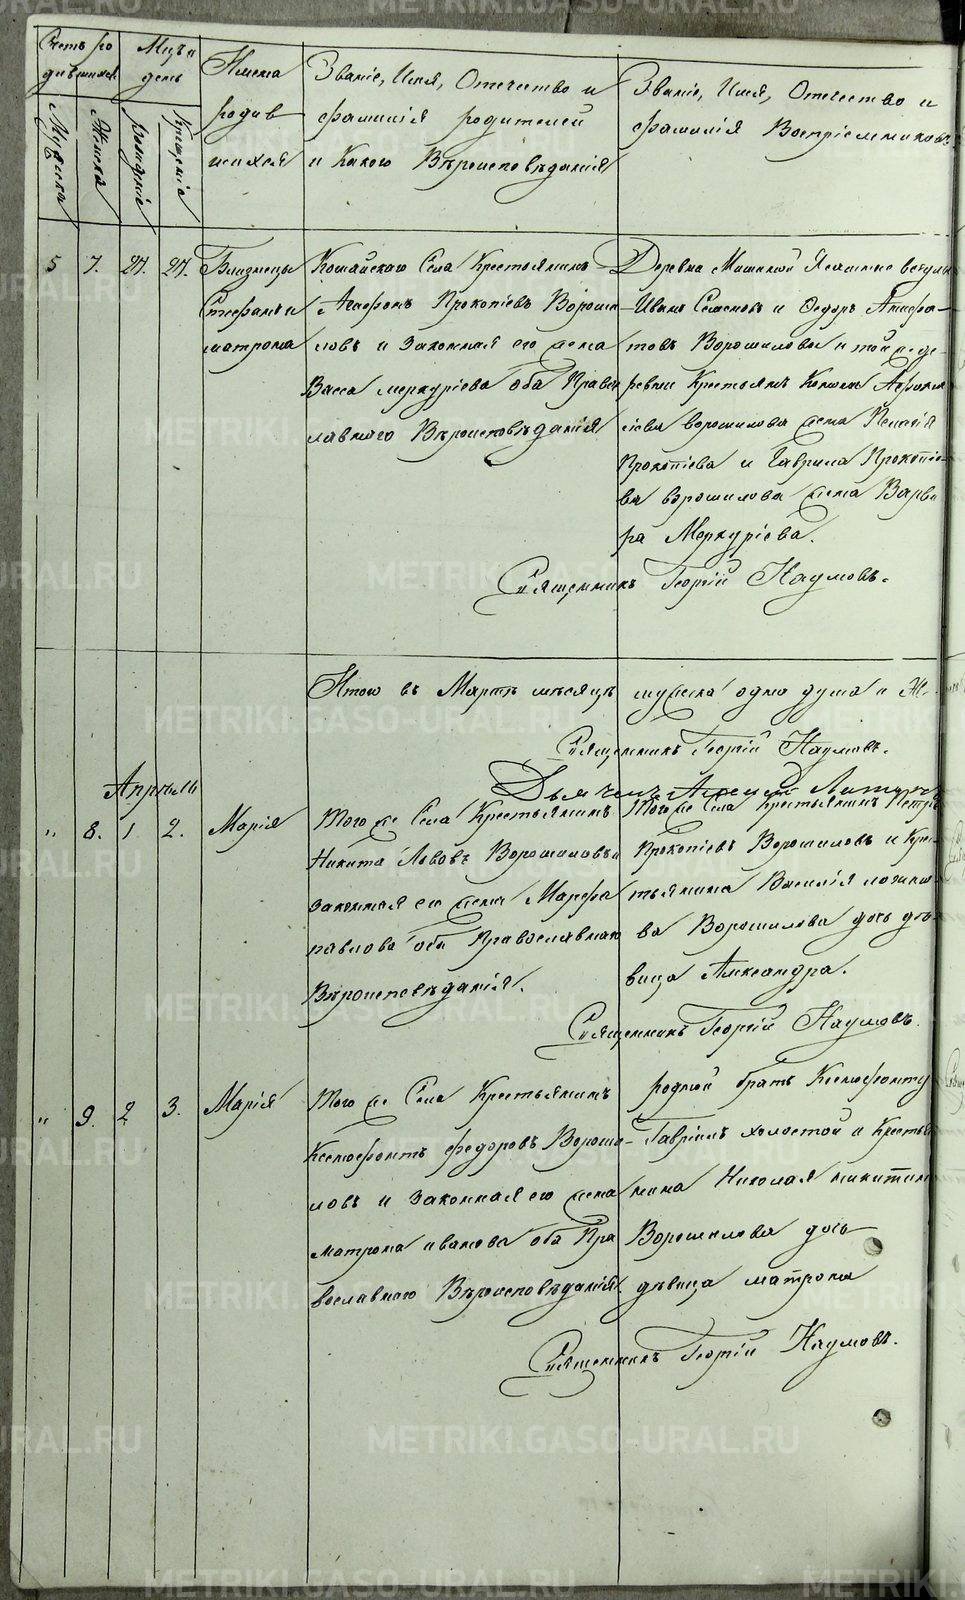 Счетъ ро
дившихся
Мужска
Женска
Мцъ и
день
рожденіе
крещеніе
Имена
родив
шихся
Званіе, Имя, Отечество и
фамилія родителей
и Какого Вѣроисповѣданія
Званіе, Имя, Отечество и
фамилія Воспріемниковъ
5 7. 27. 27.
Близнецы
Стефанъ и
матрона
Села Крестьянинъ
Агафонъ Прокопіевъ Вороши
ловъ и Законная его жена
Васса меркуріева оба Право
лавнаго Вѣроисповѣданія
Деревни
Иванъ Семеновъ и Ѳедоръ
Ворошиловы и той же де
ревни Крестьянъ
ворошилова жена
Прокопіева и Гаврила Прокопіе
ва ворошилова жена Варва
ра Меркуріева.
Священникъ Георгій Наумовъ.
Итого въ Мартѣ мѣсяцѣ мужска одна душа и
Священникъ Георгій Наумовъ.
Апрѣль
„ 8. 1 2. Марія
Того же Села Крестьянинъ
Никита Львовъ Ворошиловъ и
законная его жена Марфа
павлова оба Православнаго
Вѣроисповѣданія.
Того же Села крестьянинъ Петръ
Прокопіевъ Ворошиловъ и Кре
тьянина Василія
ва Ворошилова дочь дѣ
вица Александра.
Священникъ Георгій Наумовъ.
„ 9. 2 3. Марія
Того же Села Крестьянинъ
Ксенофонтъ федоровъ Вороши
ловъ и Законная его жена
матрона иванова оба Пра
вославнаго Вѣроисповѣданія.
родной братъ Ксенофонту
Гавріилъ холостой и Кресть
нина Николая никитин
Ворошилова дочь
дѣвица матрона
Священникъ Георгій Наумовъ.
METRIKI.GASO-URAL.RU